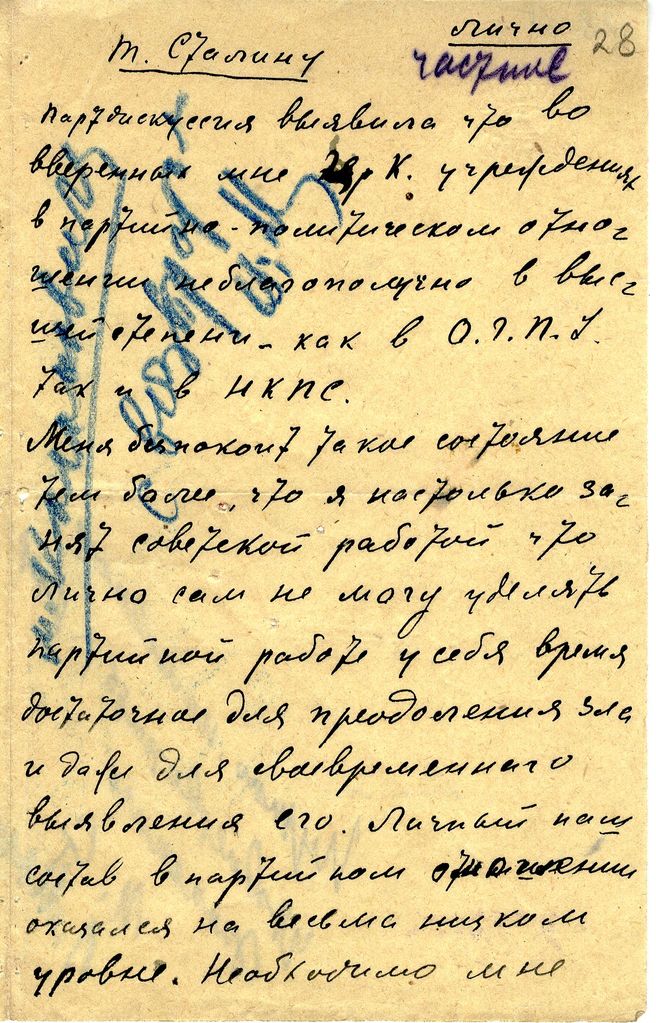 лично
28
т. Сталину
частное
партдискуссия выявила что во
вверенных мне К. учреждениях
в партийно-политическом отно-
шении неблагополучно в выс-
шей степени – как в О.Г.П.У.
так и в НКПС.
Меня беспокоит такое состояние
тем более, что я настолько за-
нят советской работой что
лично сам не могу уделять
партийной работе у себя время
достаточное для преодоления зла
и даже для своевременного
выявления его. Личный наш
состав в партийном отношении
оказался на весьма низком
уровне. Необходимо мне
с возвратом